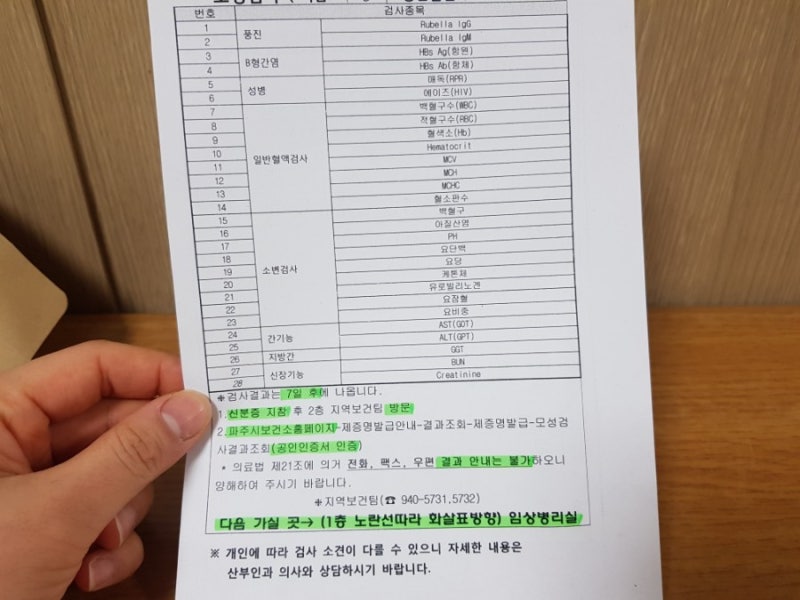 번호 검사종목
1 풍진 Rubella IgG
2 Rubella IgM
3 B형간염 HBs Ag(항원)
4 HBs Ab(항체)
5 성병 매독(RPR)
6 에이즈(HIV)
7 일반혈액검사 백혈구수(WBC)
8 적혈구수(RBC)
9 혈색소(Hb)
10 Hematocrit
11 MCV
12 MCH
13 MCHC
14 혈소판수
15 소변검사 백혈구
16 아질산염
17 PH
18 요단백
19 요당
20 케톤체
21 유로빌리노겐
22 요잠혈
23 요비중
24 간기능 AST(GOT)
25 ALT(GPT)
26 지방간 GGT
27 신장기능 BUN
28 Creatinine
※검사결과는 7일 후에 나옵니다.
1.신분증 지참 후 2층 지역보건팀 방문
2.파주시보건소홈페이지-제증명발급안내-결과조회-제증명발급-모성검
사결과조회(공인인증서 인증)
* 의료법 제21조에 의거 전화, 팩스, 우편 결과 안내는 불가하오니
양해하여 주시기 바랍니다.
※지역보건팀(☎ 940-5731.5732)
다음 가실 곳→ (1층 노란선따라 화살표방향) 임상병리실
※ 개인에 따라 검사 소견이 다를 수 있으니 자세한 내용은
산부인과 의사와 상담하시기 바랍니다.